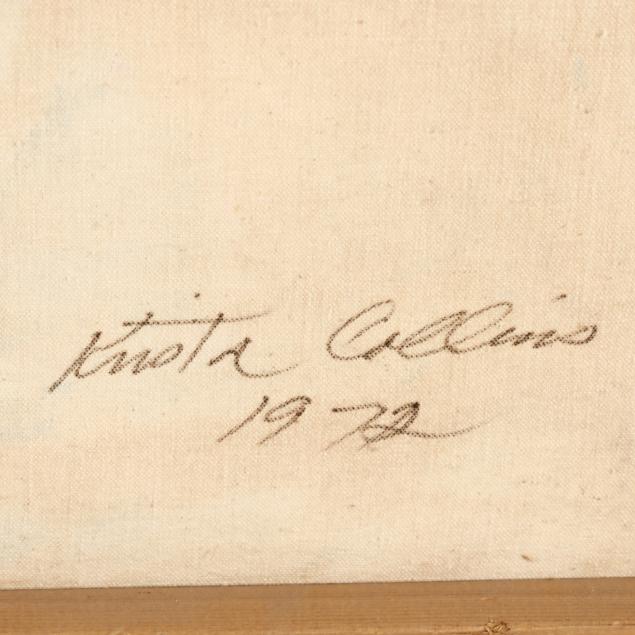 Krista Collins
1972